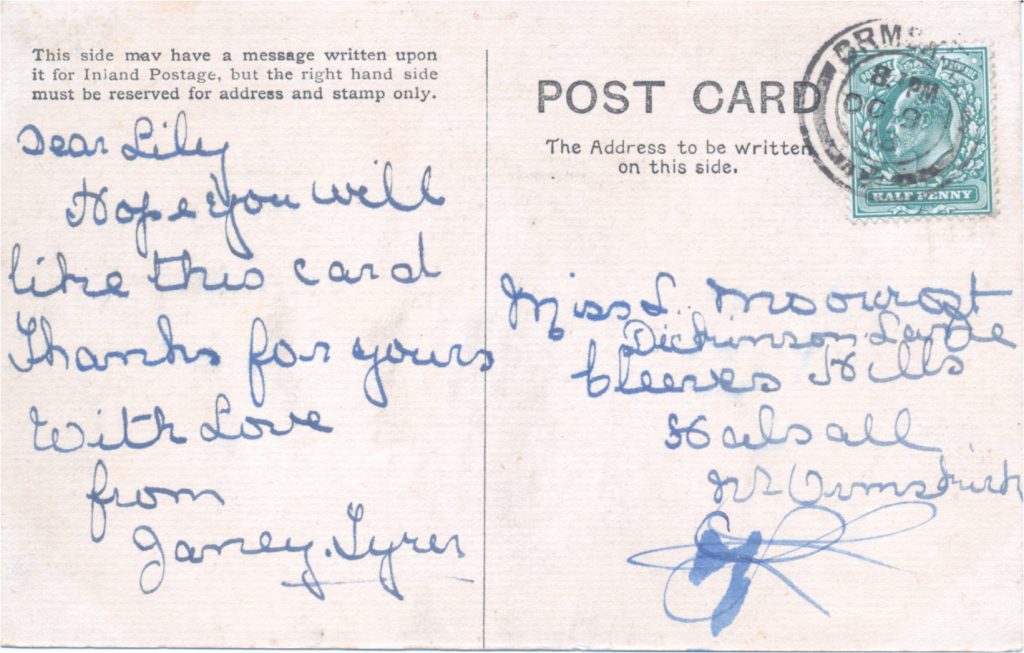 This side may have a message written upon
it for Inland Postage, but the right hand side
must be reserved for address and stamp only.
Dear Lily
Hope you will
like this card
Thanks for yours
With Love
from
Janey. Tyrer
POST CARD
The Address to be written
on this side.
8 PM
OC 9
HALF PENNY
Miss L. Moorcroft
Dickinson Lane
Cleeves Hills
Halsall
Nr Ormskirk